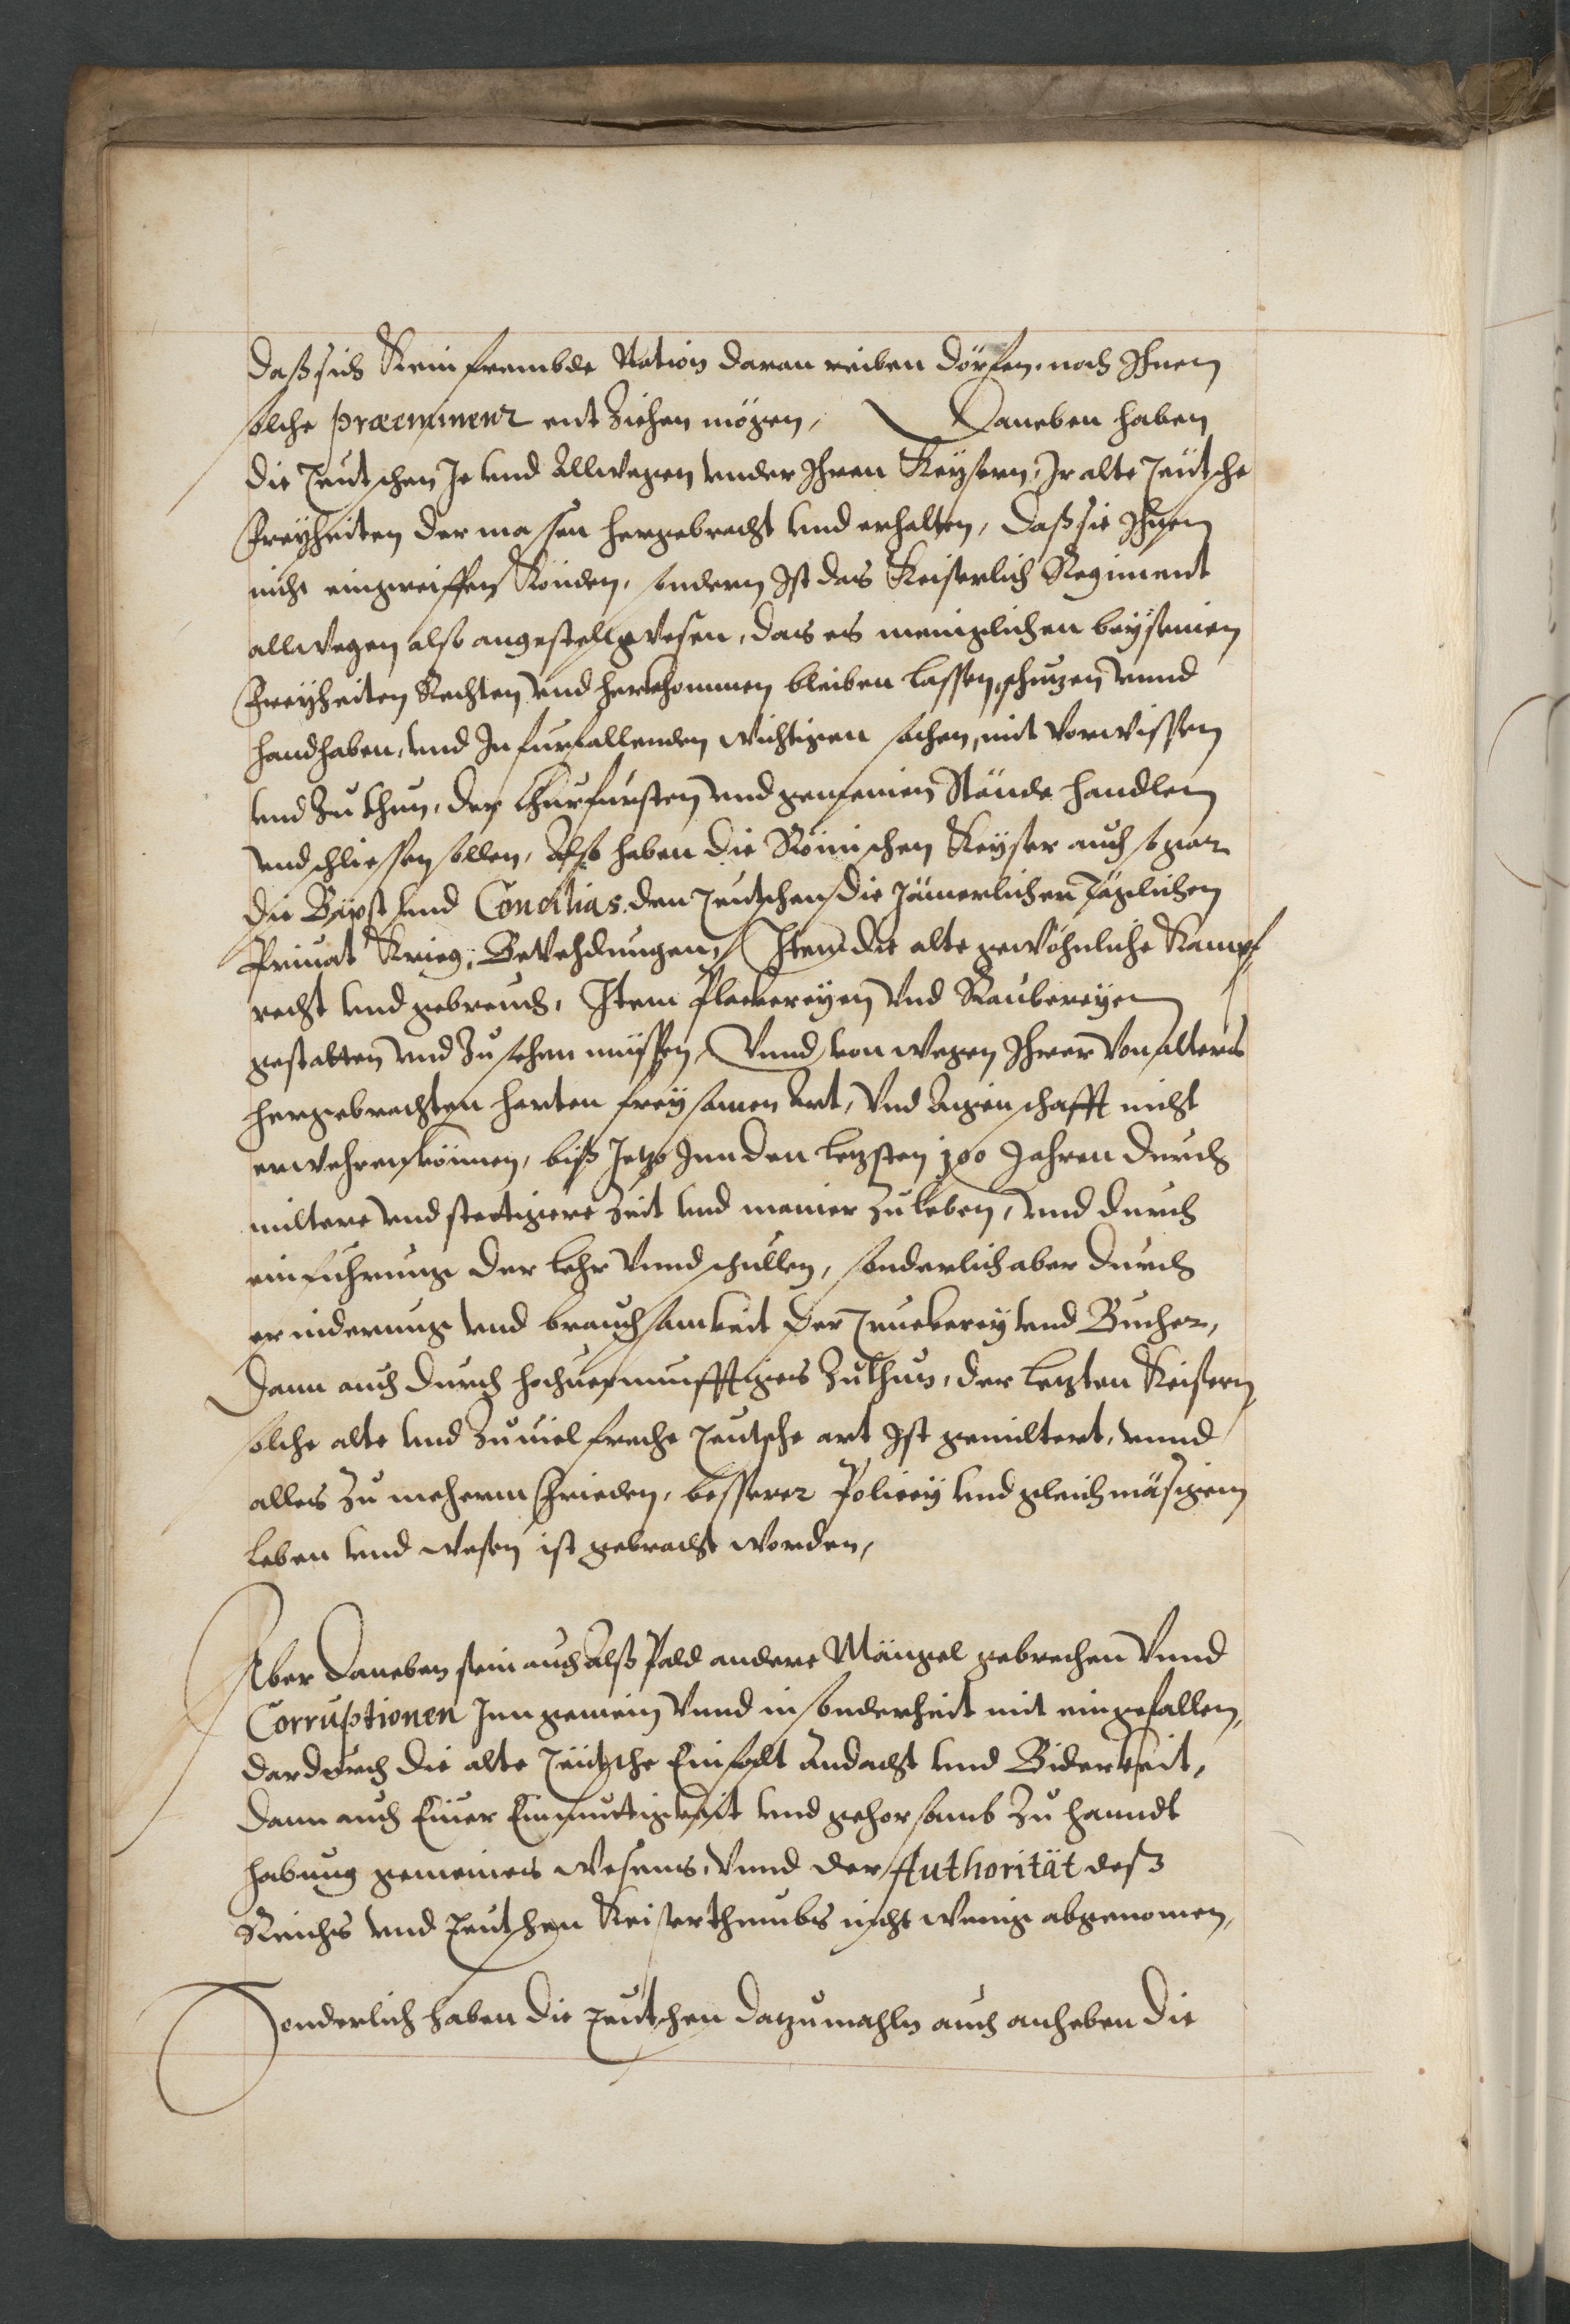 daß sich Kein frembde Nation daran reiben dörfen, noch Ihnen
solche præeminenz entziehen mögen, Daneben haben
die Teutschen Je und Allwegen under Ihren Keysern, Ir alte Teutsche
Freyheiten der massen hergebracht und erhalten, daß sie Ihnen
nicht eingreiffen Könden, sondern Ist das Keiserlich Regiment
allwegen also angestellt gwesen, das es meniglichen bey seinen
Freyheiten Rechten und herkhommen bleiben lassen, schuzen unnd
handhaben, und In furfallenden wichtigen sachen, mit Vorwissen
und Zuthun, der Churfursten und gemeinen Stände handlen
und schliessen sollen, Also haben die Römischen Keyser auch sogar
die Bäpst und Concilias den Teutschen die Jämerlichen täglichen
Privat Krieg, Bevehdungen, Item die alte gewöhnliche Kampf
recht und gebreuch, Item Plackereyen und Raubereyen
gestatten und Zusehen müssen, Unnd von wegen Ihrer Von alters
hergebrachten harten freysamen Art, Und Aigenschafft nicht
erwehren können, biß Jetzo Inn den letzsten 100 Jahren durch
miltere und stettigere Zeit und manier Zuleben, und durch
einfuhrung der lehr Unnd schullen, sonderlich aber durch
erinderung und brauchsamkeit der Truckerey und Bucher,
Dann auch durch hochvernunfftiges Zuthun, der letzten Keisern,
solche alte und Zuviel freche Teutsche art Ist gemiltert, unnd
alles Zu meherm Frieden, besserer Policey und gleichmäsigem
leben und wesen ist gebracht worden,
Aber Daneben sein auch Alß Pald andere Mängel gebrechen Unnd
Corruptionen Inn gemein Unnd in sonderheit mit eingefallen,
dardurch die alte Teütsche Einfalt Andacht und Biderkeit,
dann auch Einer Einmuttigkeit und gehorsamb Zu hanndt
habung gemeines Wesens, Unnd der Authorität deß
Reichs und Teutschen Keiserthumbs nicht wenig abgenomen,
Sonderlich haben die Teutschen datzumahln auch anheben die